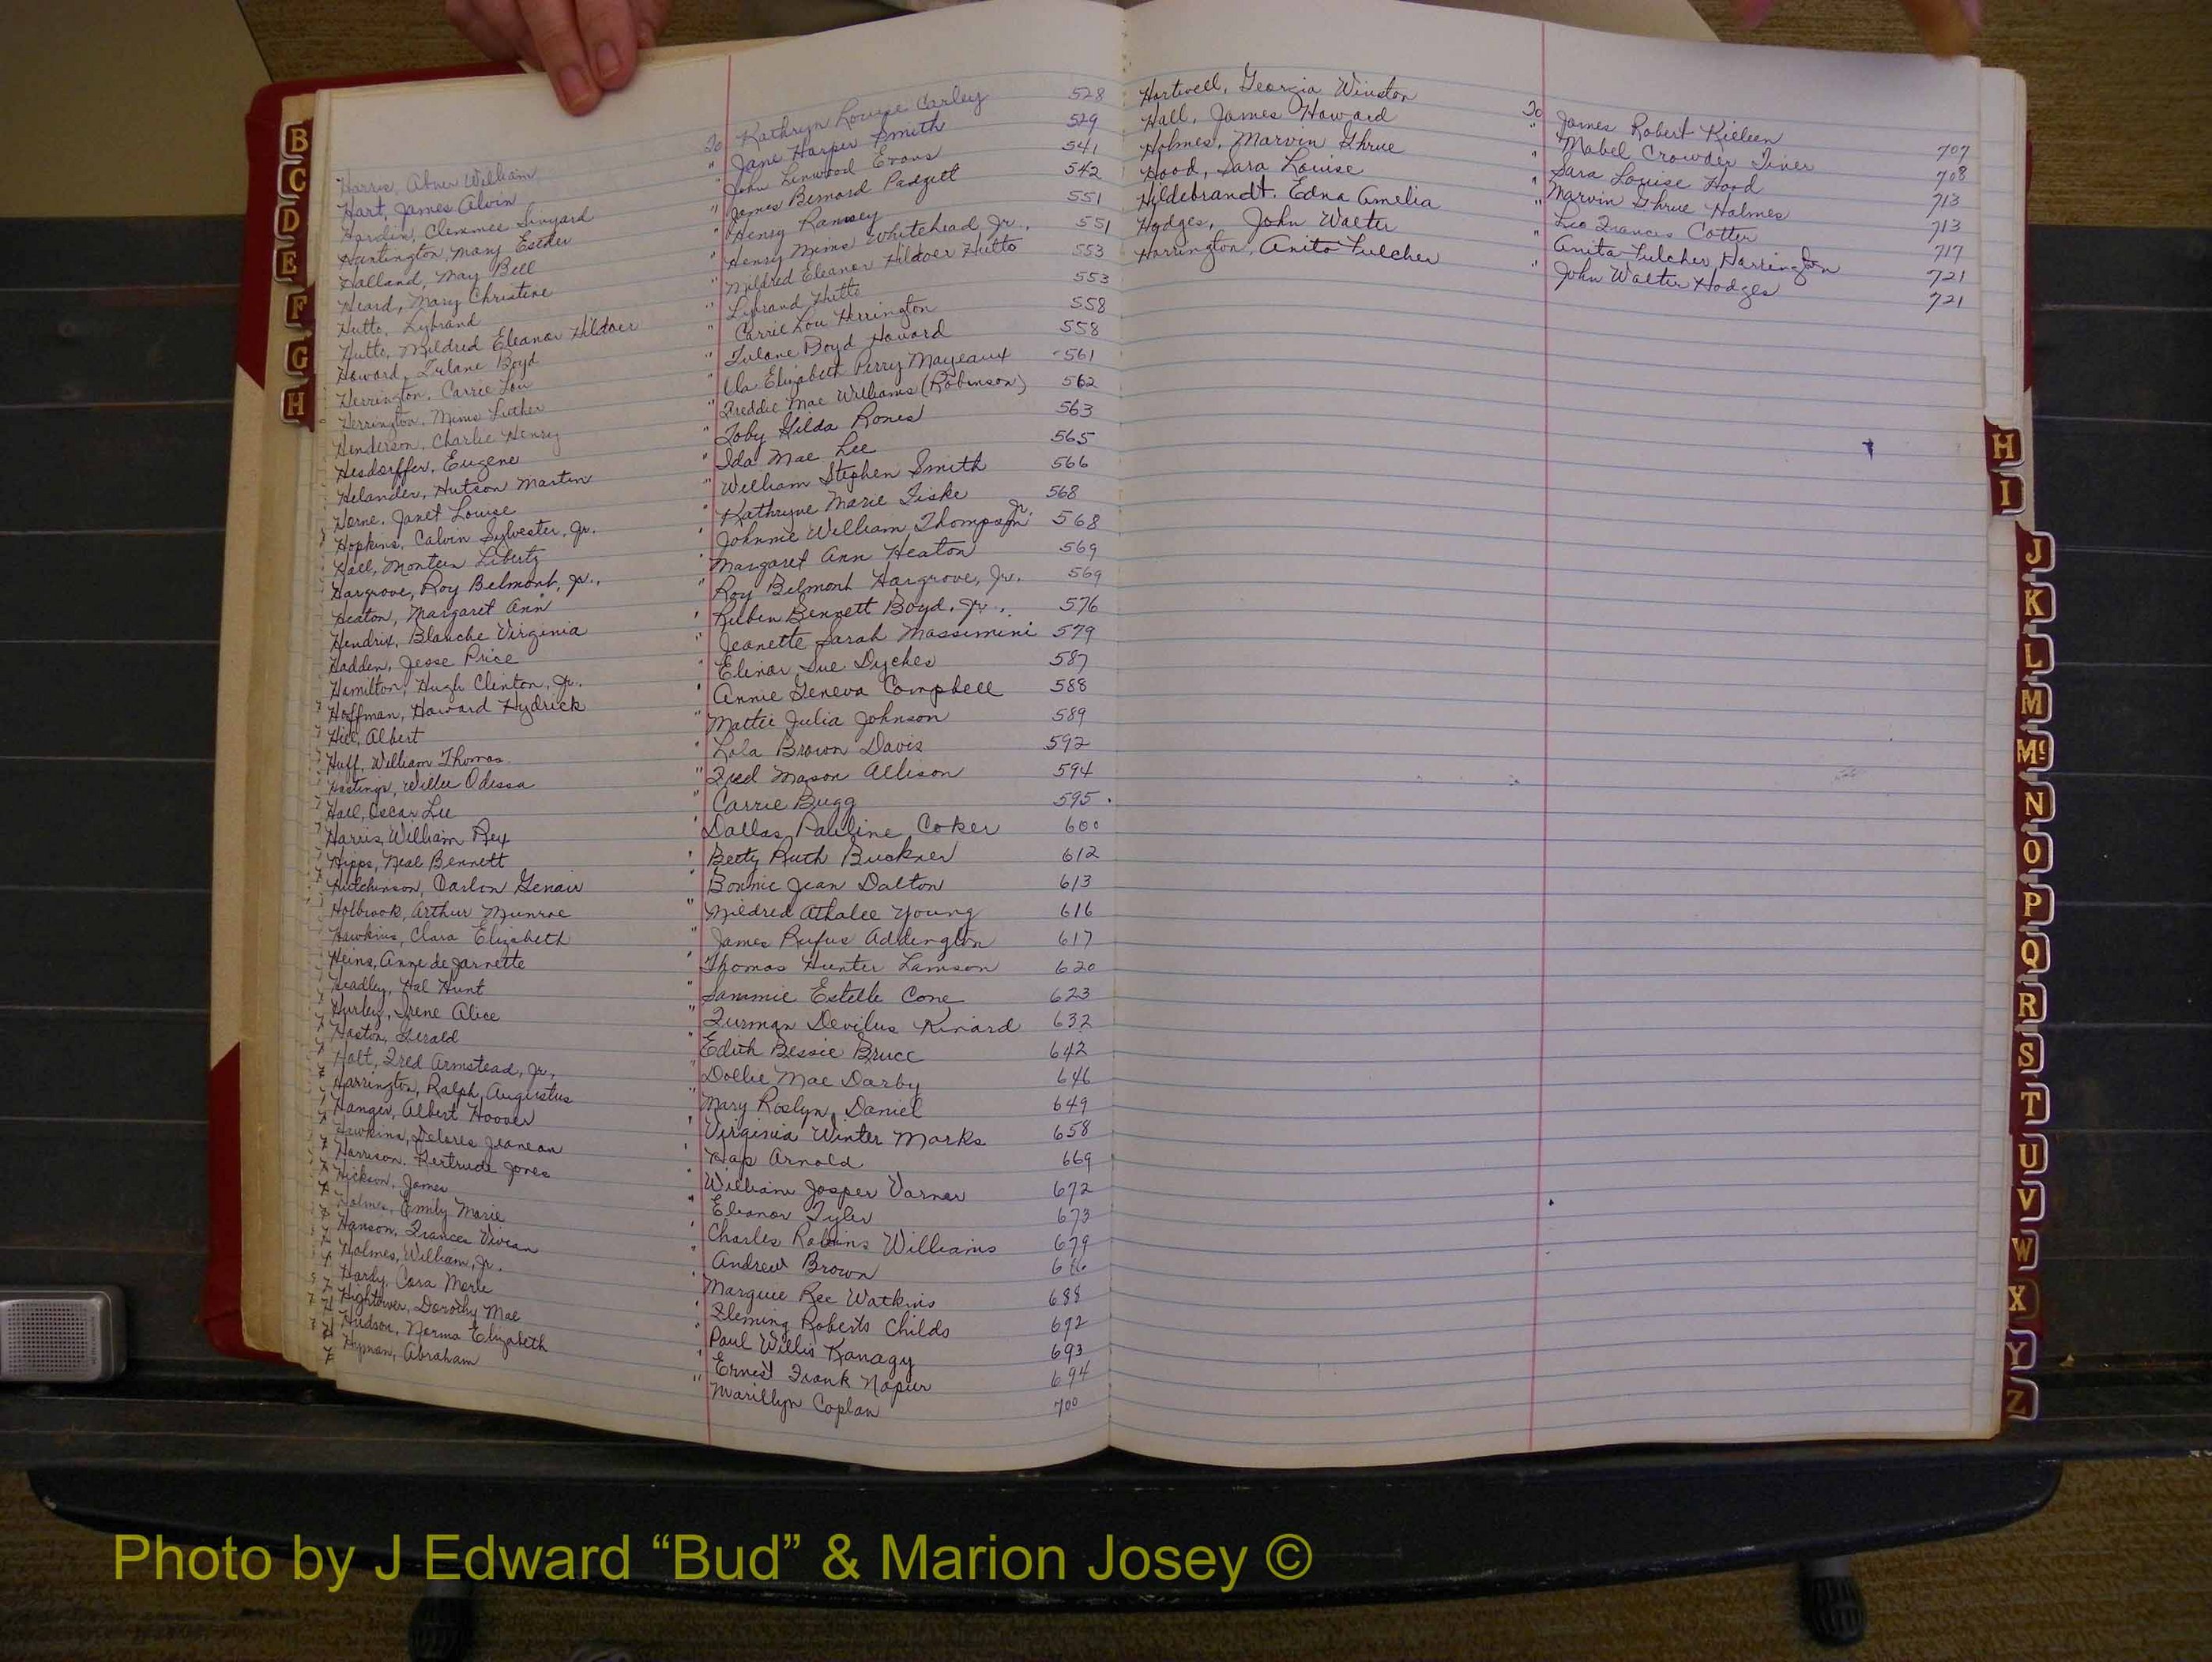 B
C
D
E
F
G
H
Harris, Abner William To Kathryn Louise Carley 528
Hart, James Alvin " Jane Harper Smith 529
Hardin, Clemmee Sinyard " John Linwood Evans 541
Huntington, Mary Esther " James Bernard Padgett 542
Holland, May Bell " Henry Ramsey 551
Heard, Mary Christine " Henry Mims Whitehead, Jr., 551
Hutto, Lybrand " Mildred Eleanor Hildver Hutto 553
Hutto, Mildred Eleanor Hildver " Lybrand Hutto 553
Howard, Tulane Boyd " Carrie Lou Herrington 558
Herrington, Carrie Lou " Tulane Boyd Howard 558
Herrington, Mims Luther " Ola Elizabeth Perry Mayeaux 561
Henderson, Charlie Henry " Freddie Mae Williams (Robinson) 562
Hesdorffer, Eugene " Toby Gilda Rones 563
Helander, Hutson Martin " Ida Mae Lee 565
Horne, Janet Louise " William Stephen Smith 566
Hopkins, Calvin Sylvester, Jr. " Kathryne Marie Fiske 568
Hall, Montein Liberty " Johnnie William Thompson Jr. 568
Hargrove, Roy Belmont, Jr., " Margaret Ann Heaton 569
Heaton, Margaret Ann " Roy Belmont Hargrove, Jr. 569
Hendrix, Blanche Virginia " Reuben Bennett Boyd, Jr., 576
Hadden, Jesse Price " Jeanette Sarah Massimini 579
Hamilton, Hugh Clinton, Jr. " Elinor Sue Dyches 587
Hoffman, Howard Hydrick " Annie Geneva Campbell 588
Hill, Albert " Mattie Julia Johnson 589
Huff, William Thomas " Lola Brown Davis 592
Hastings, Willie Odessa " Fred Mason Allison 594
Hall, Oscar Lee " Carrie Bugg 595
Harris, William Rex " Dallas Pauline Coker 600
Hipps, Neal Bennett " Betty Ruth Buckner 612
Hutchinson, Carlon Genair " Bonnie Jean Dalton 613
Holbrook, Arthur Munroe " Mildred Athalee Young 616
Hawkins, Clara Elizabeth " James Rufus Addington 617
Heins, Anne de Jarnette " Thomas Hunter Lamson 620
Headley, Hal Hunt " Sammie Estelle Cone 623
Hurley, Irene Alice " Furman Devilus Kinard 632
Haston, Gerald " Edith Bessie Bruce 642
Holt, Fred Armstead, Jr., " Dollie Mae Darby 646
Harrington, Ralph Augustus " Mary Roslyn Daniel 649
Hanger, Albert Hoover " Virginia Winter Marks 658
Hawkins, Delores Jeanean " Hap Arnold 669
Harrison, Gertrude Jones William Jasper Varner 672
Hickson, James " Eleanor Tyler 673
Holmes, Emily Marie " Charles Robins Williams 679
Hanson, Frances Vivian " Andrew Brown
Holmes, William, Jr. Marguie Ree Watkins 688
Hardy, Cora Merle " Fleming Roberts Childs 692
Hightower, Dorothy Mae " Paul Willis Kanagy 693
Hudson, Norma Elizabeth " Ernest Frank Napier 694
Hyman, Abraham " Marillyn Coplan 700
Hartwell, Georgia Winston To James Robert Killeen 707
Hall, James Howard " Mabel Crowder Tiner 708
Holmes, Marvin Shrue " Sara Louise Hood 713
Hood, Sara Louise " Marvin Shrue Holmes 713
Hildebrandt, Edna Amelia " Leo Frances Cotter 717
Hodges, John Walter " Anita Fulcher Harrington 721
Harrington, Anita Fulcher " John Walter Hodges 721
H
I
J
K
L
M
Mc
N
O
P
Q
R
S
T
U
V
W
X
Y
Z
Photo by J Edward “Bud” & Marion Josey ©